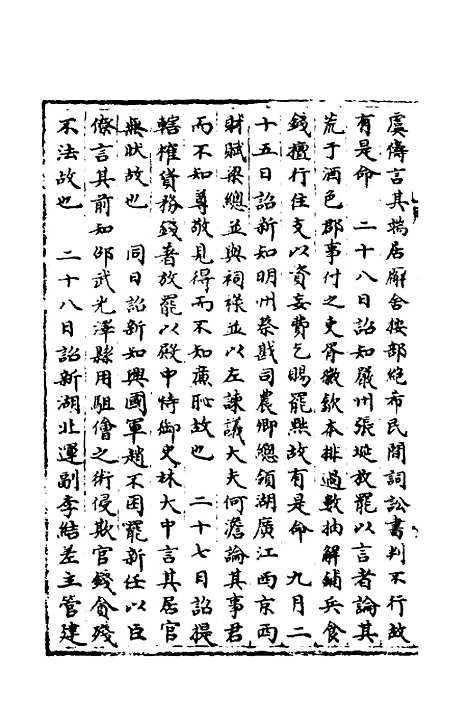 虞儔言其端居廨舍按部絶希民間詞訟書判不行故
有是命　二十八日詔知嚴州張埏放罷以言者論其
荒于酒色郡事付之吏胥徽欽本排過數抽解鋪兵食
錢擅行住支以資妄費乞賜罷黜故有是命　九月二
十五日詔新知明州蔡戡司農卿總領湖廣江西京西
財賦梁總並與祠祿並以左諫議大夫何澹論其事君
而不知尊敬見得而不知廉恥故也　二十七日詔提
轄榷貨務錢蓍放罷以殿中侍御史林大中言其居官
無狀故也　同日詔新知興國軍趙不困罷新任以臣
僚言其前知邵武光澤縣用駔儈之術侵欺官錢貪殘
不法故也　二十八日詔新湖北運副李結差主管建